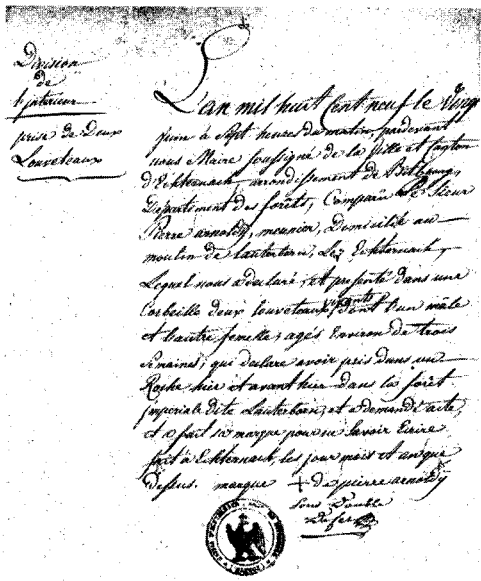 Division
de
l'intérieur
prise de Deux
Louveteaux
L'an mil huit Cent neuf le Vingt
juin à Sept heures du matin, pardevant
nous Maire soussigné de la Ville et Canton
d'Echternach, arrondissement de Bitbourg,
Département des forêts, Comparu Le Sieur
Pierre arnoldy, meunier, Domicilié au
moulin de Lauterborn, Lez Echternach,
Lequel nous a declaré, et presenté dans une
Corbeille deux louveteaux vivants, dont l'un mâle
et l'autre femelle, agés Environ de trois
Semaines, qui declare avoir pris dans un
Roche hier et avant hier dans la forêt
imperiale dite Lauterborn, et a demandé acte
et a fait sa marque pour ne Savoir Ecrire
fait à Echternach, les jour mois et an que
Dessus. marque + de pierre arnoldy
pour Double